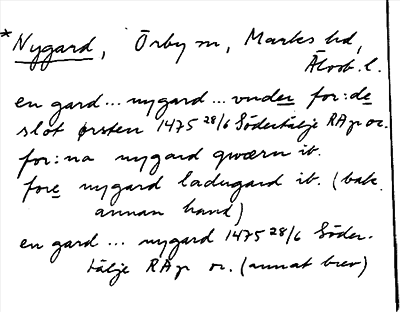 *Nygard, Örby sn, Marks hd,
Älvsb. l.
en gard... nygard... vnder for:de
slot ørsten 1475 28/6 Södertälje RAp or.
for:na nygard qwærn ib.
fore nygard ladugard ib. (bak.
annan hand)
en gard... nygard 1475 28/6 Söder-
tälje RAp or. (annat brev)